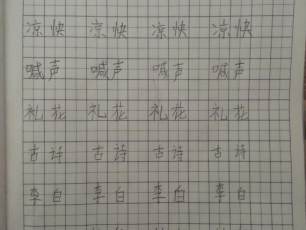 凉快 凉快 凉快 凉快
喊声 喊声 喊声 喊声
礼花 礼花 礼花 礼花
古诗 古诗 古诗 古诗
李白 李白 李白 李白